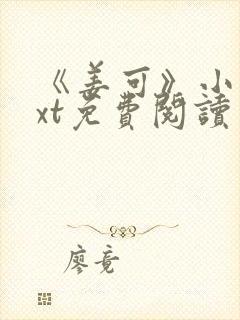 《姜可》小
xt免費閱讀
廖竟